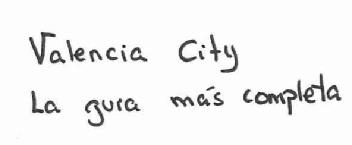 Valencia City
La guía más completa